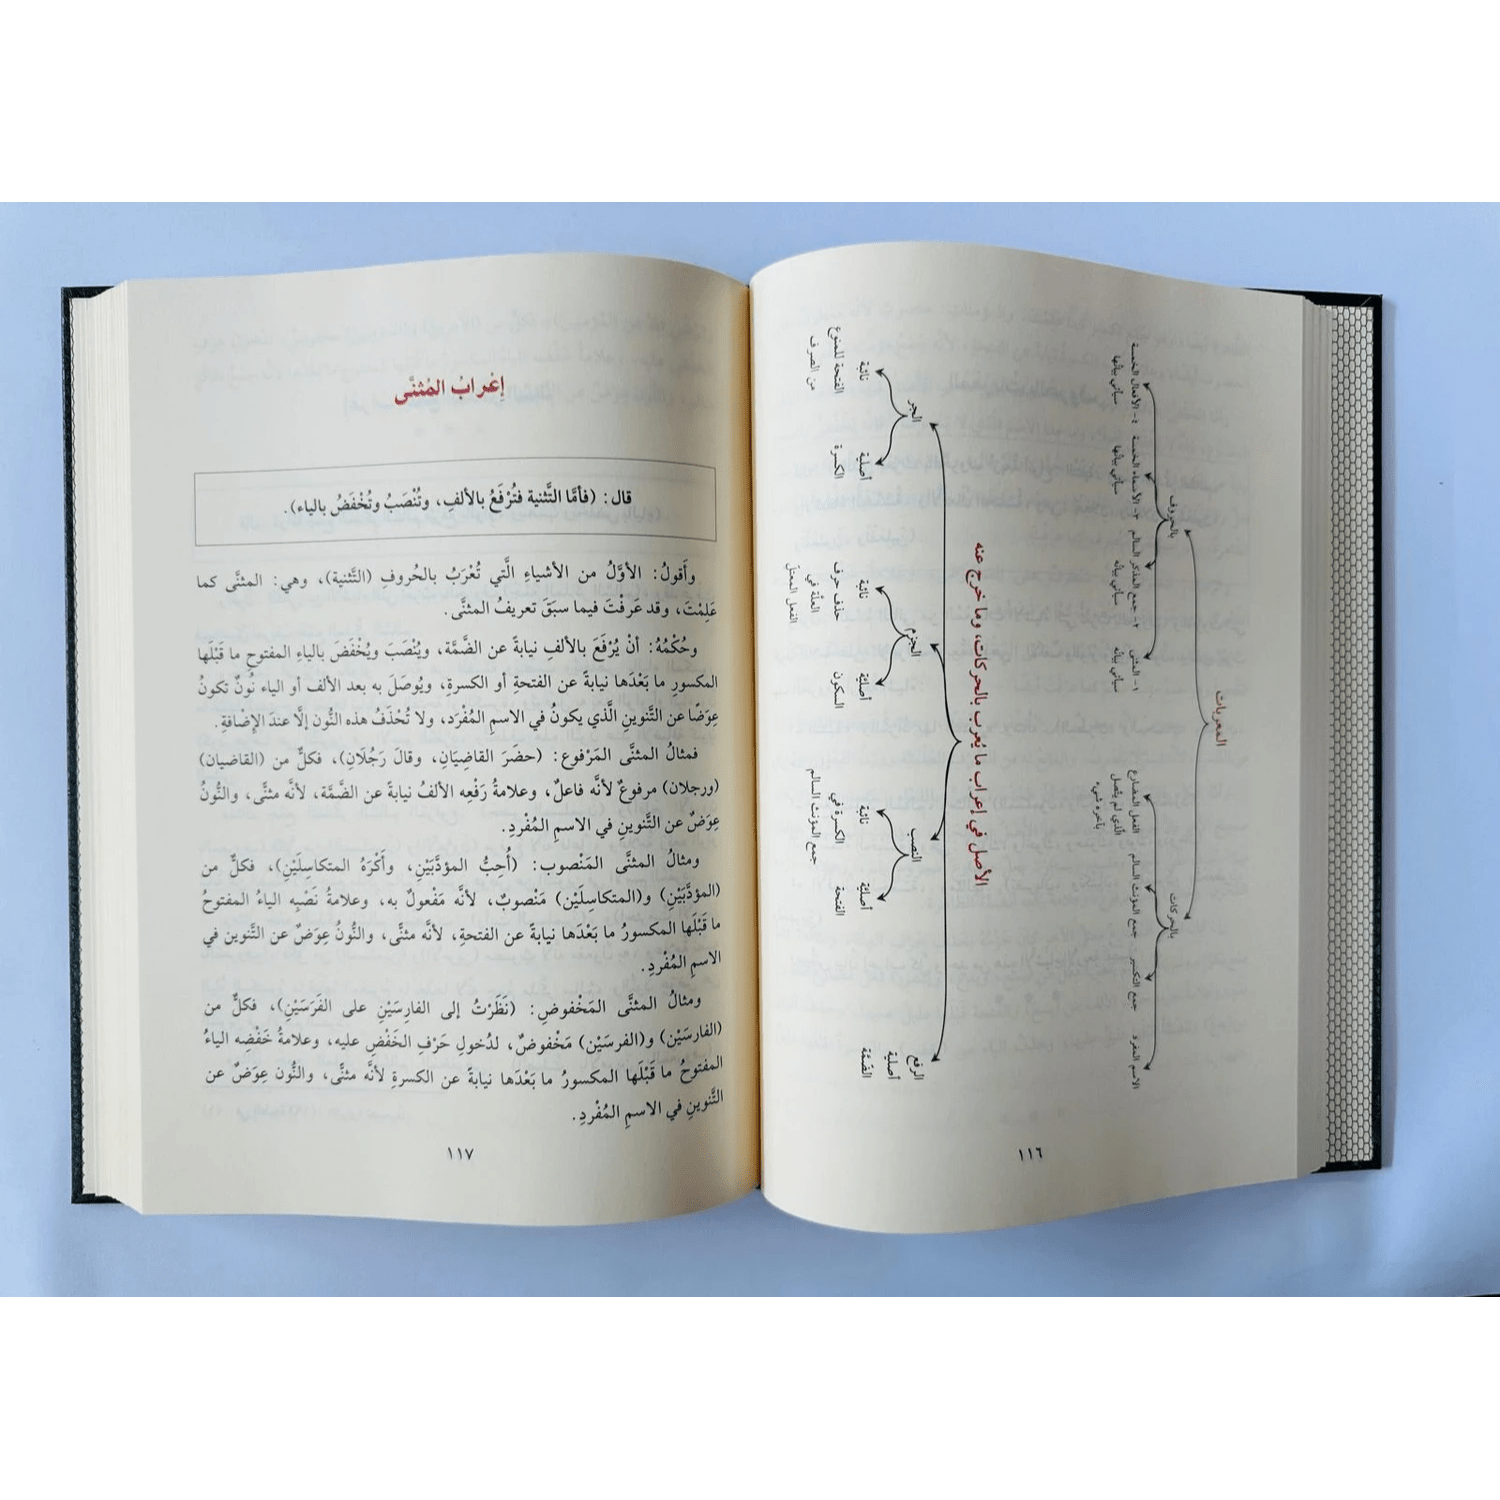 المعربات
بالحركات
بالحروف
الاسم المفرد
جمع التكسير
جمع المؤنث السالم
الفعل المضارع
الذي لم يتصل
بآخره شيء
١- المثنى
سيأتي بيانه
٢- جمع المذكر السالم
سيأتي بيانه
٣- الأسماء الخمسة
سيأتي بيانها
٤- الأفعال الخمسة
سيأتي بيانها
الأصل في إعراب ما يُعرب بالحركات، وما خرج عنه
الرفع
أصلية
الضمّة
النصب
أصليّة
الفتحة
نائبة
الكسرة في
جمع المؤنث السالم
الجزم
أصليّة
السكون
نائبة
حذف حرف
العلّة في
الفعل المعتلّ
الجر
أصلية
الكسرة
نائبة
الفتحة للممنوع
من الصرف
١١٦
إعْرابُ المُثنَّى
قال: (فأمَّا التَّثنية فتُرْفَعُ بالألفِ، وتُنْصَبُ وتُخْفَضُ بالياء).
وأَقولُ: الأوَّلُ من الأشياءِ الَّتي تُعْرَبُ بالحُروفِ (التَّثنية)، وهي: المثنَّى كما
عَلِمْتَ، وقد عَرفْتَ فيما سبَقَ تعريفُ المثنَّى.
وحُكْمُهُ: أنْ يُرْفَعَ بالألفِ نيابةً عن الضَّمَّة، ويُنْصَبَ ويُخْفَضَ بالياءِ المفتوحِ ما قَبْلَها
المكسورِ ما بَعْدَها نيابةً عن الفتحةِ أو الكسرةِ، ويُوصَلَ به بعد الألف أو الياء نُونٌ تكونُ
عِوَضًا عن التَّنوينِ الَّذي يكونُ في الاسمِ المُفْرَد، ولا تُحْذَفُ هذه النُّون إلَّا عندَ الإضافةِ.
فمثالُ المثنَّى المَرْفوع: (حضَرَ القاضِيَان، وقالَ رَجُلَانِ)، فكلٌّ من (القاضيان)
(ورجلان) مرفوعٌ لأنَّه فاعلٌ، وعلامةُ رَفْعِه الألفُ نيابةً عن الضَّمَّة، لأنَّه مثنَّى، والنُّونُ
عِوَضٌ عن التَّنوينِ في الاسمِ المُفْردِ.
ومثالُ المثنَّى المَنْصوب: (أُحِبُّ المؤدَّبَيْنِ، وأَكْرَهُ المتكاسِلَيْنِ)، فكلٌّ من
(المؤدَّبَيْنِ) و(المتكاسِلَيْن) مَنْصوبٌ، لأنَّه مَفْعولٌ به، وعلامةُ نَصْبِه الياءُ المفتوحُ
ما قَبْلَها المكسورُ ما بَعْدَها نيابةً عن الفتحةِ، لأنَّه مثنَّى، والنُّونُ عِوَضٌ عن التَّنوين في
الاسمِ المُفْردِ.
ومثالُ المثنَّى المَخْفوضِ: (نَظَرْتُ إلى الفارِسَيْنِ على الفَرَسَيْنِ)، فكلٌّ من
(الفارسَيْنِ) و(الفرسَيْن) مَخْفوضٌ، لدُخولِ حَرْفِ الخَفْضِ عليه، وعلامةُ خَفْضِه الياءُ
المفتوحُ ما قَبْلَها المكسورُ ما بَعْدَها نيابةً عن الكسرةِ لأنَّه مثنًّى، والنُّون عِوَضٌ عن
التَّنوينِ في الاسمِ المُفْردِ.
١١٧